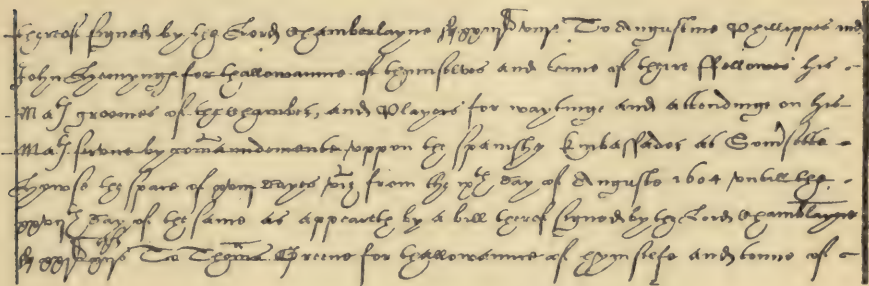 thereof signed by the Lord Chamberlayne To Augustine Phillippes and
John Hemynges for thallowaunce of themselves and tenne of theire ffellowes his
Maty groomes of the chamber, and Players for waytinge and attendinge on his
Maty servic by comaundemente vppon the Spanishe Embassador at Somersette
howse the space of xviij dayes viz from the ixth day of Auguste 1604 vntill the
xxvijth day of the same as appeareth by a bill therof signed by the Lord Chamblayne
To Thomas Greene for thallowaunce of hymselfe and tenne of